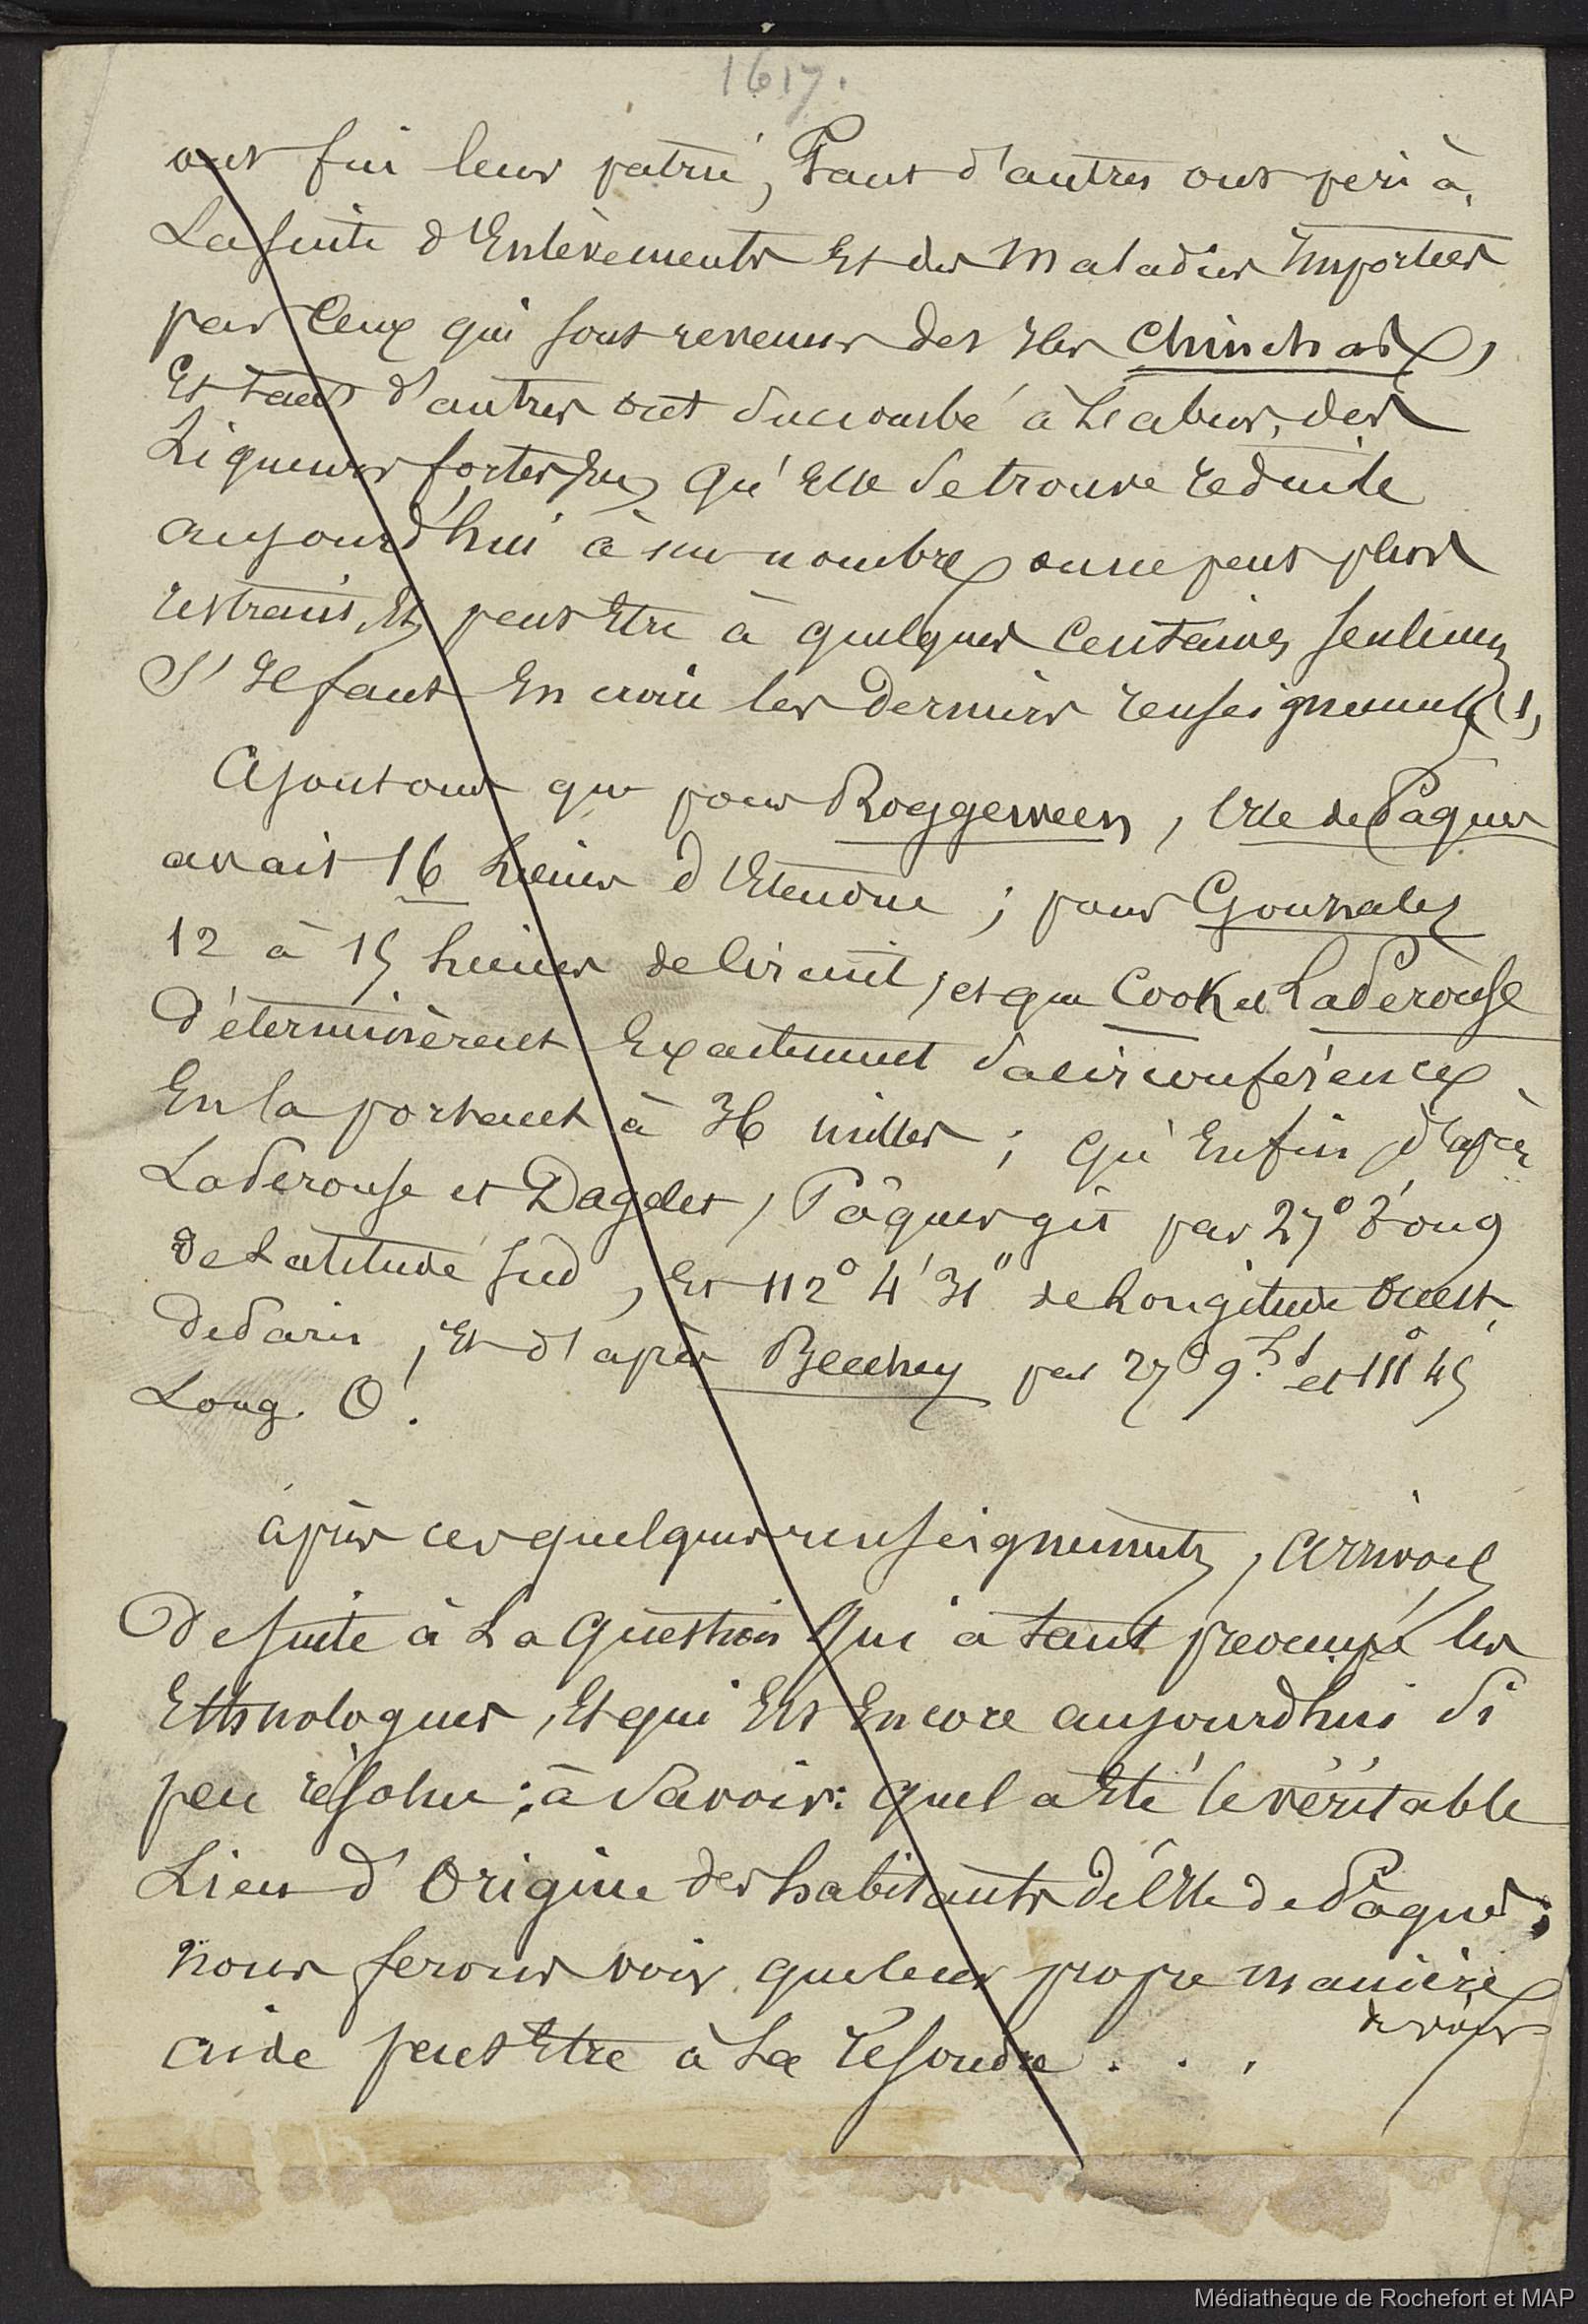 1617.
ont fui leur patrie, Tant d'autres ont péri à
La suite d'Enlèvements Et des Maladies Importées
par Ceux qui sont revenus des Iles Chinchas,
Et tant d'autres ont succombé à L'abus des
Liqueurs fortes, qu'Elle se trouve réduite
aujourd'hui à un nombre on ne peut plus
restreint, Et peut Etre à quelques Centaines seulement
S'Il faut En croire les derniers renseignements (1)
Ajoutons que pour Roggeween, l'Ile de Pâques
avait 16 Lieues d'Etendue ; pour Gonzales
12 à 15 Lieues de Circuit, et que Cook et LaPerouse
déterminèrent Exactement sa circonférence
En la portant à 36 milles ; qu'Enfin d'après
LaPerouse et Dagelet, Pâques gît par 27° 3'
de Latitude Sud, Et 112° 4' 31" de Longitude Ouest
de Paris, Et d'après Beechey par 27° 9' Lt et 111° 45
Long. O.
après ces quelques renseignements, arrivons
de suite à La question qui a tant préoccupé les
Ethnologues, Et qui Est Encore aujourd'hui si
peu résolue ; à savoir : quel a Eté le véritable
Lieu d'Origine des habitants de l'Ile de Pâques ;
nous ferons voir que leur propre manière
de voir
aide peut Etre à La résoudre . . .
Médiathèque de Rochefort et MAP